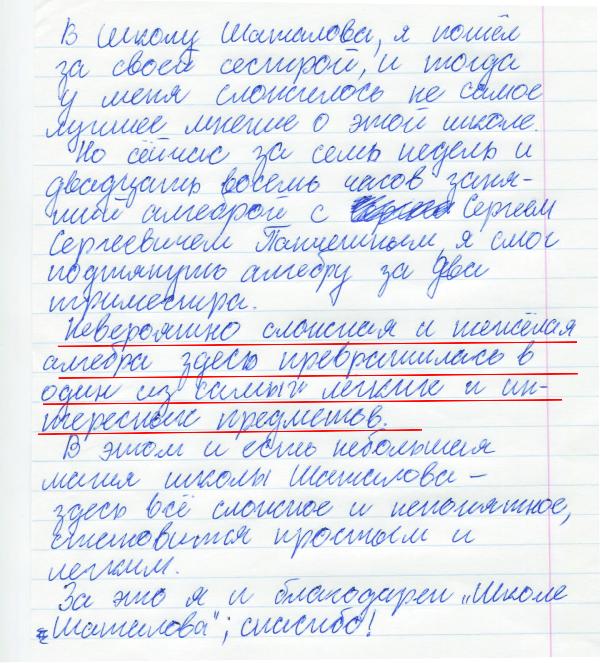 В Школу Шаталова, я пошёл
за своей сестрой, и тогда
у меня сложилось не самое
лучшее мнение о этой школе.
Но сейчас за семь недель и
двадцать восемь часов заня-
тий алгеброй с Сергеем
Сергеевичем Панчешным, я смог
подтянуть алгебру за два
триместра.
Невероятно сложная и тяжёлая
алгебра здесь превратилась в
один из самых легких и ин-
тересных предметов.
В этом и есть небольшая
магия школы Шаталова –
здесь всё сложное и непонятное,
становится простым и
легким.
За это я и благодарен "Школе
Шаталова"; спасибо!